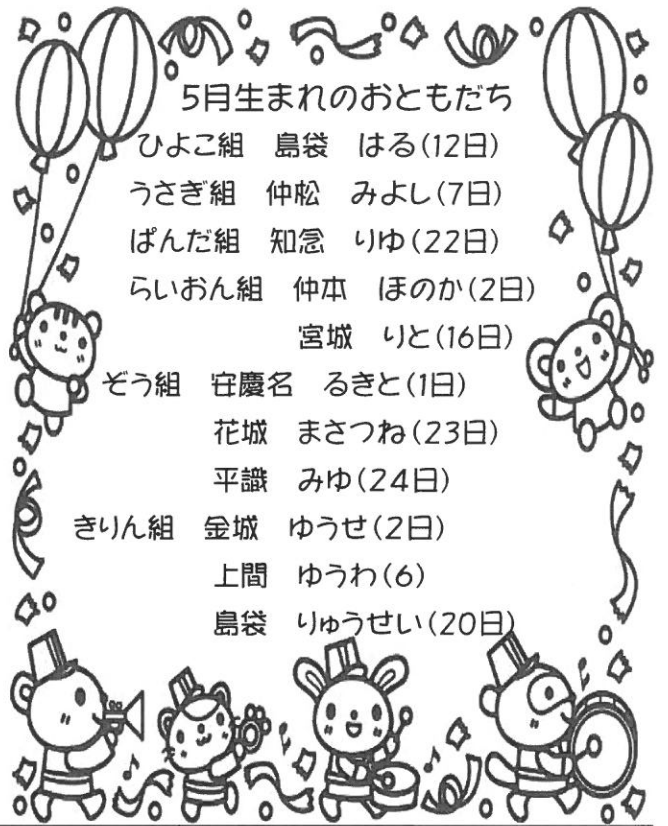 5月生まれのおともだち
ひよこ組 島袋 はる(12日)
うさぎ組 仲松 みよし(7日)
ぱんだ組 知念 りゆ(22日)
らいおん組 仲本 ほのか(2日)
宮城 りと(16日)
ぞう組 安慶名 るきと(1日)
花城 まさつね(23日)
平識 みゆ(24日)
きりん組 金城 ゆうせ(2日)
上間 ゆうわ(6)
島袋 りゅうせい(20日)